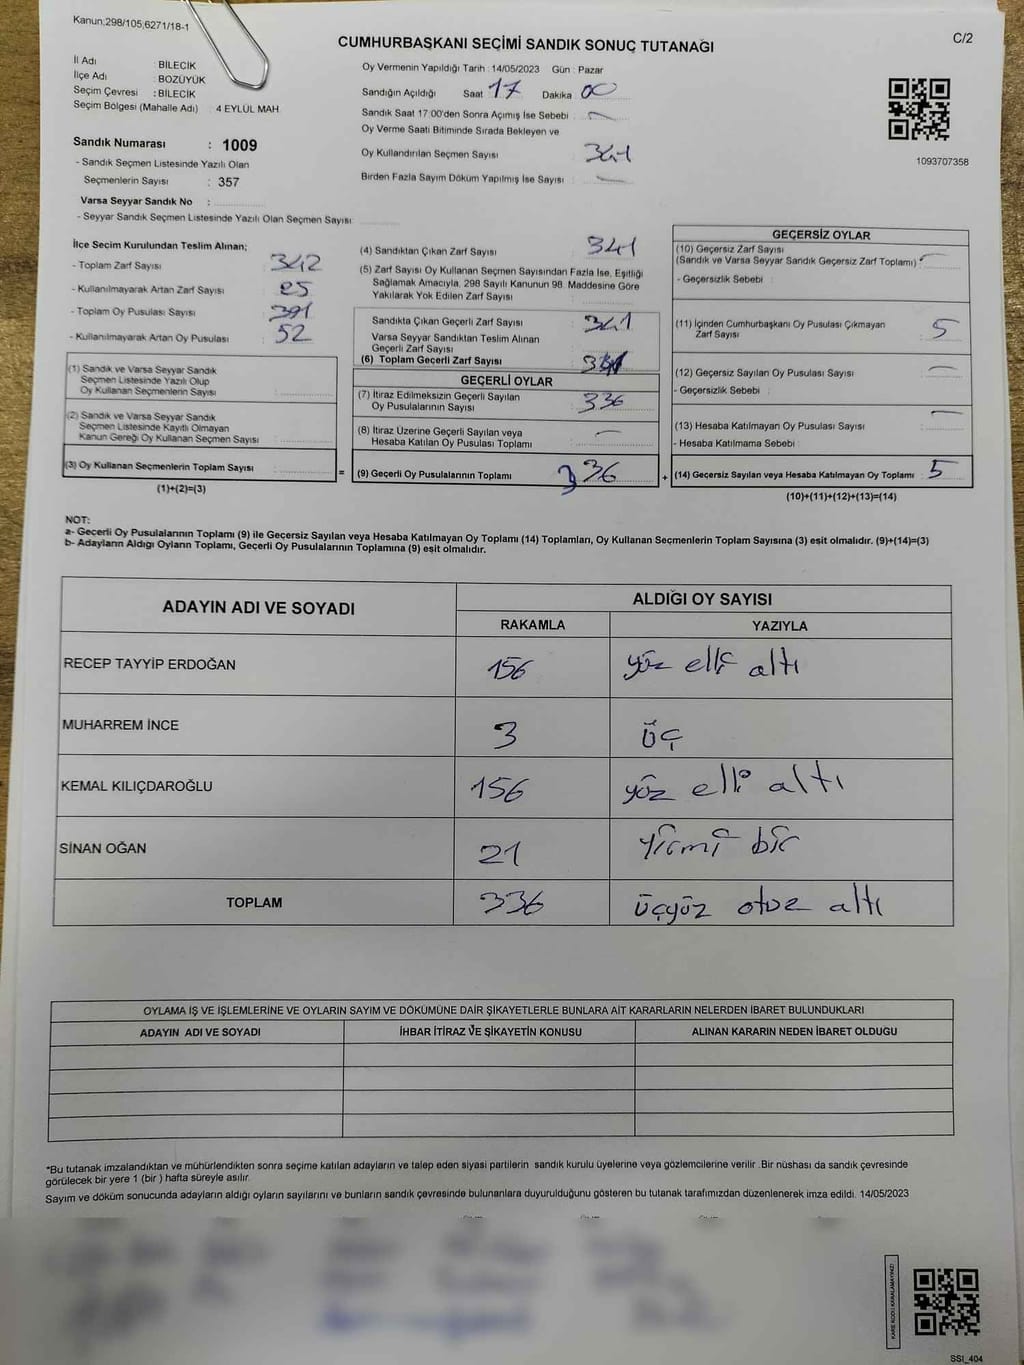 Kanun;298/105;6271/18-1
CUMHURBAŞKANI SEÇİMİ SANDIK SONUÇ TUTANAĞI
C/2
İl Adı : BİLECİK
İlçe Adı : BOZÜYÜK
Seçim Çevresi : BİLECİK
Seçim Bölgesi (Mahalle Adı) : 4 EYLÜL MAH.
Sandık Numarası : 1009
- Sandık Seçmen Listesinde Yazılı Olan
Seçmenlerin Sayısı : 357
Varsa Seyyar Sandık No :
- Seyyar Sandık Seçmen Listesinde Yazılı Olan Seçmen Sayısı:
Oy Vermenin Yapıldığı Tarih : 14/05/2023 Gün : Pazar
Sandığın Açıldığı Saat 17 Dakika 00
Sandık Saat 17:00'den Sonra Açımış İse Sebebi :
Oy Verme Saati Bitiminde Sırada Bekleyen ve
Oy Kullandırılan Seçmen Sayısı : 341
Birden Fazla Sayım Döküm Yapılmış İse Sayısı :
1093707358
İlçe Seçim Kurulundan Teslim Alınan;
- Toplam Zarf Sayısı : 342
- Kullanılmayarak Artan Zarf Sayısı : 25
- Toplam Oy Pusulası Sayısı : 391
- Kullanılmayarak Artan Oy Pusulası : 52
(1) Sandık ve Varsa Seyyar Sandık
Seçmen Listesinde Yazılı Olup
Oy Kullanan Seçmenlerin Sayısı :
(2) Sandık ve Varsa Seyyar Sandık
Seçmen Listesinde Kayıtlı Olmayan
Kanun Gereği Oy Kullanan Seçmen Sayısı :
(3) Oy Kullanan Seçmenlerin Toplam Sayısı :
(1)+(2)=(3)
(4) Sandıktan Çıkan Zarf Sayısı : 341
(5) Zarf Sayısı Oy Kullanan Seçmen Sayısından Fazla İse, Eşitliği
Sağlamak Amacıyla, 298 Sayılı Kanunun 98. Maddesine Göre
Yakılarak Yok Edilen Zarf Sayısı :
Sandıkta Çıkan Geçerli Zarf Sayısı : 341
Varsa Seyyar Sandıktan Teslim Alınan
Geçerli Zarf Sayısı :
(6) Toplam Geçerli Zarf Sayısı : 341
GEÇERLİ OYLAR
(7) İtiraz Edilmeksizin Geçerli Sayılan
Oy Pusulalarının Sayısı : 336
(8) İtiraz Üzerine Geçerli Sayılan veya
Hesaba Katılan Oy Pusulası Toplamı :
= (9) Geçerli Oy Pusulalarının Toplamı : 336
GEÇERSİZ OYLAR
(10) Geçersiz Zarf Sayısı
(Sandık ve Varsa Seyyar Sandık Geçersiz Zarf Toplamı) :
- Geçersizlik Sebebi :
(11) İçinden Cumhurbaşkanı Oy Pusulası Çıkmayan
Zarf Sayısı : 5
(12) Geçersiz Sayılan Oy Pusulası Sayısı :
- Geçersizlik Sebebi :
(13) Hesaba Katılmayan Oy Pusulası Sayısı :
- Hesaba Katılmama Sebebi :
+ (14) Geçersiz Sayılan veya Hesaba Katılmayan Oy Toplamı : 5
(10)+(11)+(12)+(13)=(14)
NOT:
a- Geçerli Oy Pusulalarının Toplamı (9) ile Geçersiz Sayılan veya Hesaba Katılmayan Oy Toplamı (14) Toplamları, Oy Kullanan Seçmenlerin Toplam Sayısına (3) eşit olmalıdır. (9)+(14)=(3)
b- Adayların Aldığı Oyların Toplamı, Geçerli Oy Pusulalarının Toplamına (9) eşit olmalıdır.
ADAYIN ADI VE SOYADI ALDIĞI OY SAYISI
RAKAMLA YAZIYLA
RECEP TAYYİP ERDOĞAN 156 yüz elli altı
MUHARREM İNCE 3 üç
KEMAL KILIÇDAROĞLU 156 yüz elli altı
SİNAN OĞAN 21 yirmi bir
TOPLAM 336 üçyüz otuz altı
OYLAMA İŞ VE İŞLEMLERİNE VE OYLARIN SAYIM VE DÖKÜMÜNE DAİR ŞİKAYETLERLE BUNLARA AİT KARARLARIN NELERDEN İBARET BULUNDUKLARI
ADAYIN ADI VE SOYADI İHBAR İTİRAZ VE ŞİKAYETİN KONUSU ALINAN KARARIN NEDEN İBARET OLDUĞU
*Bu tutanak imzalandıktan ve mühürlendikten sonra seçime katılan adayların ve talep eden siyasi partilerin sandık kurulu üyelerine veya gözlemcilerine verilir .Bir nüshası da sandık çevresinde
görülecek bir yere 1 (bir ) hafta süreyle asılır.
Sayım ve döküm sonucunda adayların aldığı oyların sayılarını ve bunların sandık çevresinde bulunanlara duyurulduğunu gösteren bu tutanak tarafımızdan düzenlenerek imza edildi. 14/05/2023
KARE KODU KARALAMAYINIZ!
SSI_404